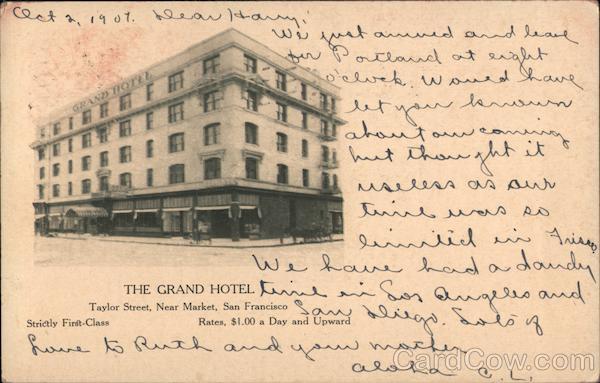 Oct 2, 1907. Dear Harry:
We just arrived and leave
for Portland at eight
o'clock. Would have
let you known
about our coming
but thought it
useless as our
time was so
limited in Frisco
We have had a dandy
time in Los Angeles and
San Diego. Lots of
Love to Ruth and your mother
aloha C. L.
GRAND HOTEL
THE GRAND HOTEL
Taylor Street, Near Market, San Francisco
Strictly First-Class Rates, $1.00 a Day and Upward
CardCow.com